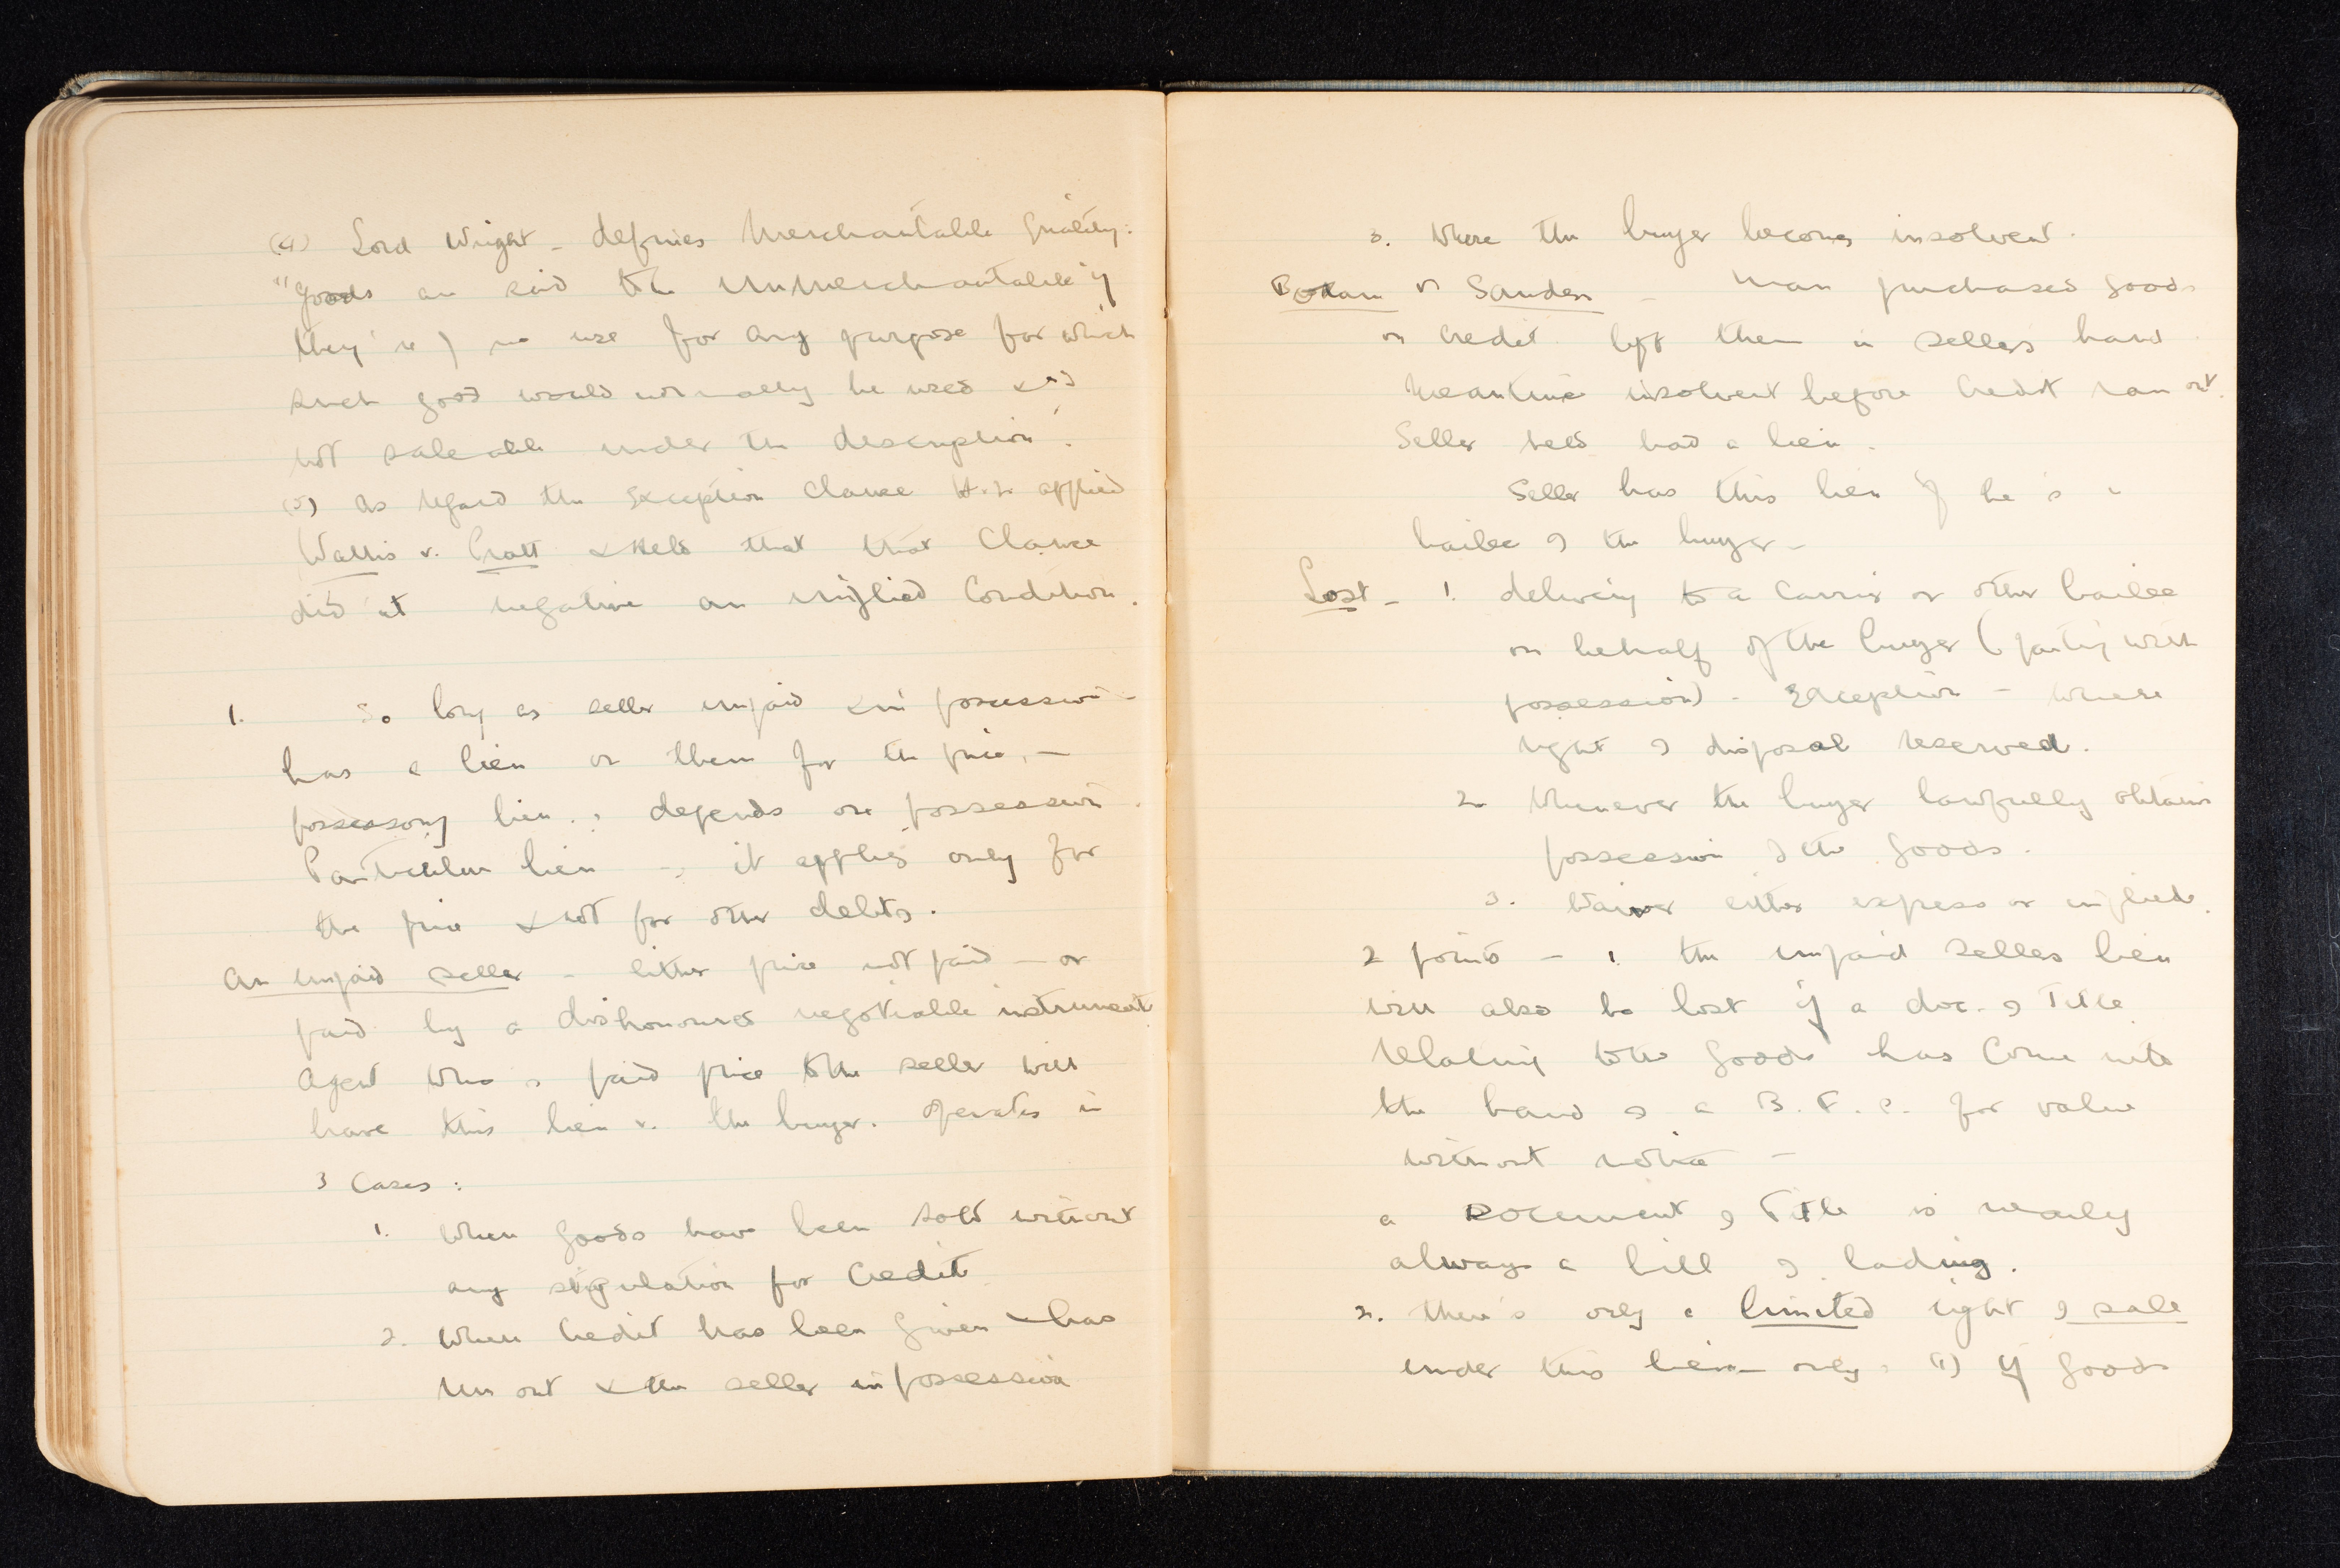 (4) Lord Wright - defines Merchantable Quality:
"goods are said to be unmerchantable if
they're of no use for any purpose for which
such goods would normally be used &
not saleable under the description".
(5) As regard the Exception Clause H.L. applied
Wallis v. Pratt & held that that clause
did nt negative an implied condition.
1. So long as seller unpaid & in possession -
has a lien on them for the price, -
possessory lien. : depends on possession.
Particular lien -, it applies only for
the price & not for other debts.
An unpaid seller - either price not paid - or
paid by a dishonoured negotiable instrument.
Agent who s paid price to the seller will
have this lien v. the buyer. Operates in
3 Cases:
1. When goods have been sold without
any stipulation for credit
2. When credit has been given & has
run out & the seller in possession
3. Where the buyer becomes insolvent.
v Sanders - Man purchased goods
on credit left them in sellers hand
Meantime insolvent before credit ran out.
Seller held had a lien.
Seller has this lien if he's a
bailee of the buyer -
Lost - 1. delivery to a carrier or other bailee
on behalf of the buyer (parting with
possession) - Exception - where
right of disposal reserved.
2. Whenever the buyer lawfully obtains
possession of the goods.
3. Waiver either express or implied.
2 points - 1. the unpaid sellers lien
will also be lost if a doc. of Title
relating to the goods has come into
the hand of a B.F.P. for value
without notice -
a Document of Title is nearly
always a bill of lading.
2. there's only a limited right of sale
under this lien only: (1) if goods